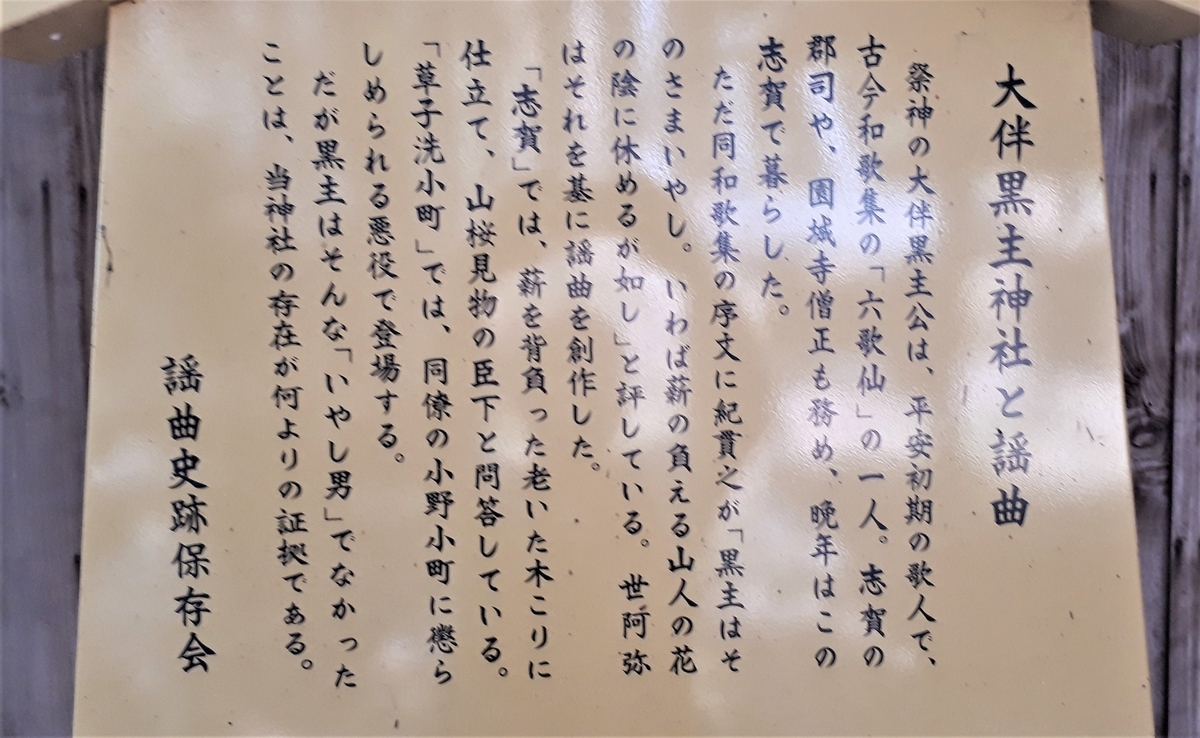 大伴黒主神社と謡曲
祭神の大伴黒主公は、平安初期の歌人で、
古今和歌集の「六歌仙」の一人。志賀の
郡司や、園城寺僧正も務め、晩年はこの
志賀で暮らした。
ただ同和歌集の序文に紀貫之が「黒主はそ
のさまいやし。いわば薪の負える山人の花
の陰に休めるが如し」と評している。世阿弥
はそれを基に謡曲を創作した。
「志賀」では、薪を背負った老いた木こりに
仕立て、山桜見物の臣下と問答している。
「草子洗小町」では、同僚の小野小町に懲ら
しめられる悪役で登場する。
だが黒主はそんな「いやし男」でなかった
ことは、当神社の存在が何よりの証拠である。
謡曲史跡保存会